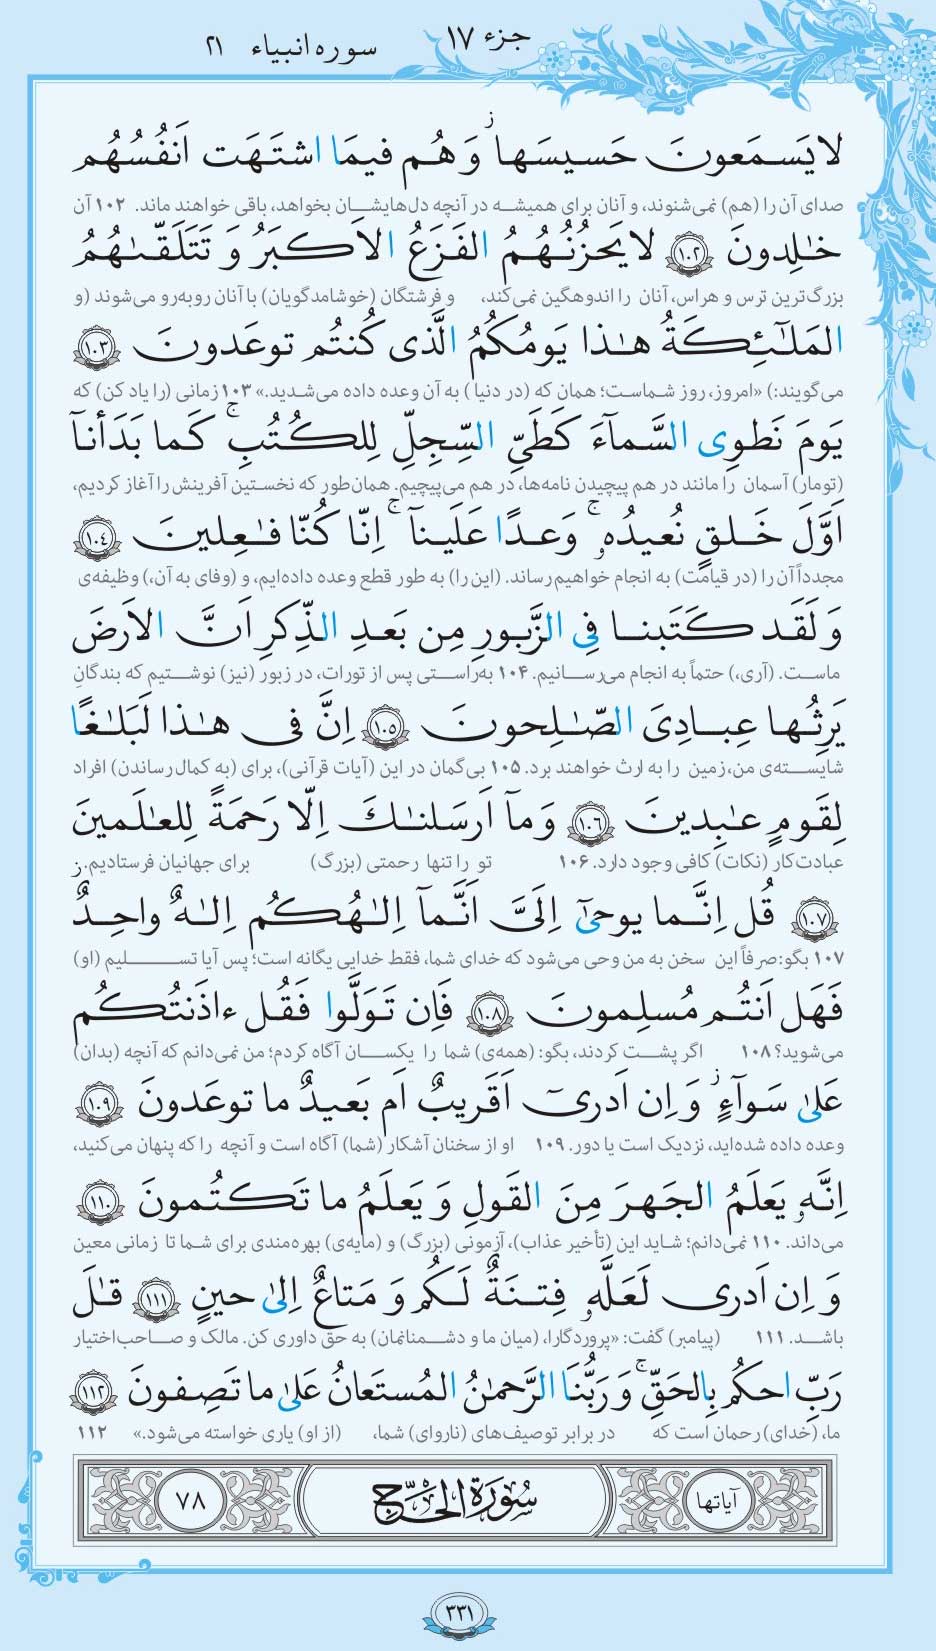 جزء ۱۷ سوره انبیاء ۲۱
لایَسمَعونَ حَسیسَها ۖ وَ هُم فیمَا اشتَهَت اَنفُسُهُم
صدای آن را (هم) نمی‌شنوند، و آنان برای همیشه در آنچه دل‌هایشان بخواهد، باقی خواهند ماند. ۱۰۲ آن
خٰلِدونَ ﴿۱۰۲﴾ لایَحزُنُهُمُ الفَزَعُ الاَکبَرُ وَ تَتَلَقّىٰهُمُ
بزرگ‌ترین ترس و هراس، آنان را اندوهگین نمی‌کند، و فرشتگان (خوشامدگویان) با آنان روبه‌رو می‌شوند (و
المَلٰٓئِکَةُ هٰذا یَومُکُمُ الَّذی کُنتُم توعَدونَ ﴿۱۰۳﴾
می‌گویند:) «امروز، روز شماست؛ همان که (در دنیا) به آن وعده داده می‌شدید.» ۱۰۳ زمانی (را یاد کن) که
یَومَ نَطوِی السَّمآءَ کَطَیِّ السِّجِلِّ لِلکُتُبِ ۚ کَما بَدَأنآ
(تومار) آسمان را مانند در هم پیچیدن نامه‌ها، در هم می‌پیچیم. همان‌طور که نخستین آفرینش را آغاز کردیم،
اَوَّلَ خَلقٍ نُعیدُهٗ ۚ وَعدًا عَلَینآ ۚ اِنّا کُنّا فٰعِلینَ ﴿۱۰۴﴾
مجدداً آن را (در قیامت) به انجام خواهیم رساند. (این را) به طور قطع وعده داده‌ایم، و (وفای به آن،) وظیفه‌ی
وَ لَقَد کَتَبنا فِی الزَّبورِ مِن بَعدِ الذِّکرِ اَنَّ الاَرضَ
ماست. (آری،) حتماً به انجام می‌رسانیم. ۱۰۴ به‌راستی پس از تورات، در زبور (نیز) نوشتیم که بندگانِ
یَرِثُها عِبادِیَ الصّٰلِحونَ ﴿۱۰۵﴾ اِنَّ فی هٰذا لَبَلٰغًا
شایسته‌ی من، زمین را به ارث خواهند برد. ۱۰۵ بی‌گمان در این (آیات قرآنی)، برای (به کمال رساندن) افراد
لِقَومٍ عٰبِدینَ ﴿۱۰۶﴾ وَ مآ اَرسَلنٰکَ اِلّا رَحمَةً لِلعٰلَمینَ
عبادت‌کار (نکات) کافی وجود دارد. ۱۰۶ تو را تنها رحمتی (بزرگ) برای جهانیان فرستادیم.
﴿۱۰۷﴾ قُل اِنَّما یوحىٰٓ اِلَیَّ اَنَّمآ اِلٰهُکُم اِلٰهٌ واحِدٌ ۖ
۱۰۷ بگو: صرفاً این سخن به من وحی می‌شود که خدای شما، فقط خدایی یگانه است؛ پس آیا تسلیم (او)
فَهَل اَنتُم مُسلِمونَ ﴿۱۰۸﴾ فَاِن تَوَلَّوا فَقُل ءاذَنتُکُم
می‌شوید؟ ۱۰۸ اگر پشت کردند، بگو: (همه‌ی) شما را یکسان آگاه کردم؛ من نمی‌دانم که آنچه (بدان)
عَلىٰ سَوآءٍ ۖ وَ اِن اَدریٓ اَقَریبٌ اَم بَعیدٌ ما توعَدونَ ﴿۱۰۹﴾
وعده داده شده‌اید، نزدیک است یا دور. ۱۰۹ او از سخنان آشکار (شما) آگاه است و آنچه را که پنهان می‌کنید،
اِنَّهٗ یَعلَمُ الجَهرَ مِنَ القَولِ وَ یَعلَمُ ما تَکتُمونَ ﴿۱۱۰﴾
می‌داند. ۱۱۰ نمی‌دانم؛ شاید این (تأخیر عذاب)، آزمونی (بزرگ) و (مایه‌ی) بهره‌مندی برای شما تا زمانی معین
وَ اِن اَدری لَعَلَّهٗ فِتنَةٌ لَکُم وَ مَتاعٌ اِلىٰ حینٍ ﴿۱۱۱﴾ قٰلَ
باشد. ۱۱۱ (پیامبر) گفت: «پروردگارا، (میان ما و دشمنانمان) به حق داوری کن. مالک و صاحب‌اختیار
رَبِّ احکُم بِالحَقِّ ۚ وَ رَبُّنَا الرَّحمٰنُ المُستَعانُ عَلىٰ ما تَصِفونَ ﴿۱۱۲﴾
ما، (خدای) رحمان است که در برابر توصیف‌های (ناروای) شما، (از او) یاری خواسته می‌شود.» ۱۱۲
آیاتها سُورَةُ الحَجّ ۷۸
۳۳۱